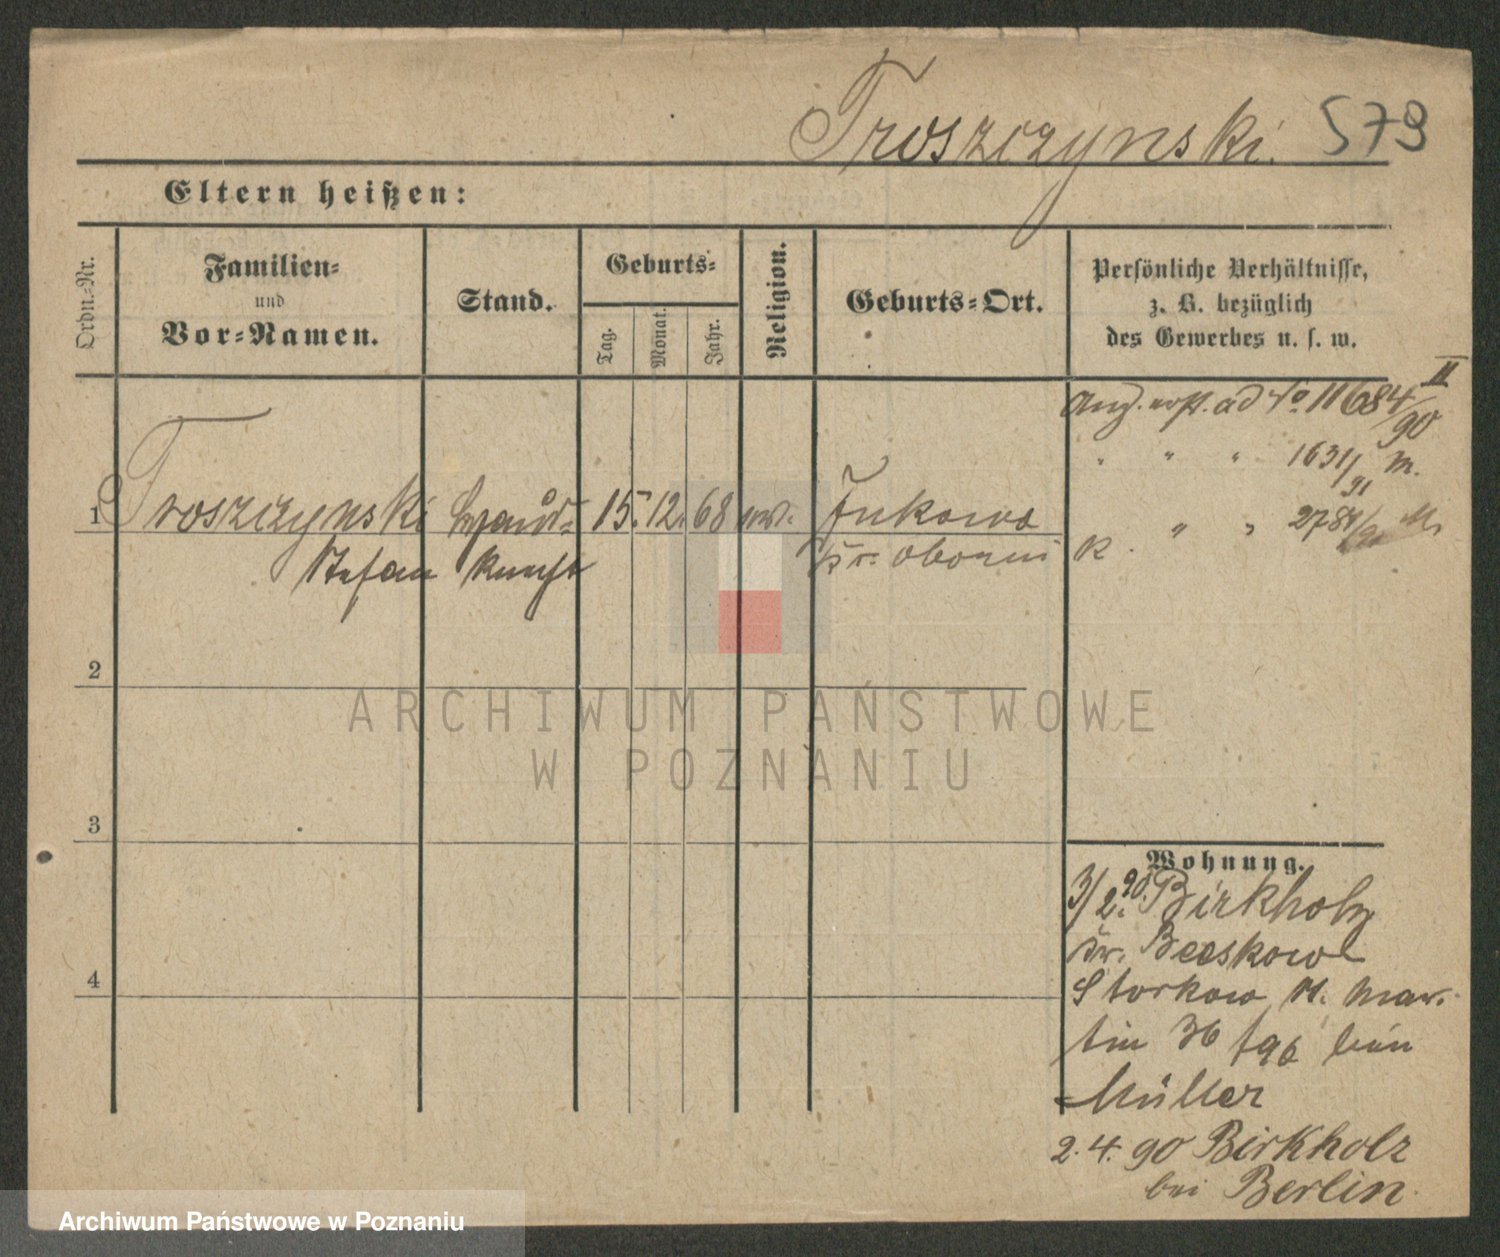 Troszczynski. 579
Eltern heißen:
Ordn.-Nr.
Familien-
und
Vor-Namen.
Stand.
Geburts-
Tag.
Monat.
Jahr.
Religion.
Geburts-Ort.
Persönliche Verhältnisse,
z. B. bezüglich
des Gewerbes u. s. w.
II
ad No 11684/90
" " " 1631/91 M.
1 Troszczynski 15. 12. 68 Jukowo
Stefan Kr. Obornik
" " 2784/
2
3
4
Wohnung.
3/2. 90. Birkholz
Kr. Beeskow
Storkow, St. Mar-
tin 36 bei
Müller
2. 4. 90 Birkholz
bei Berlin.
ARCHIWUM PAŃSTWOWE
W POZNANIU
Archiwum Państwowe w Poznaniu